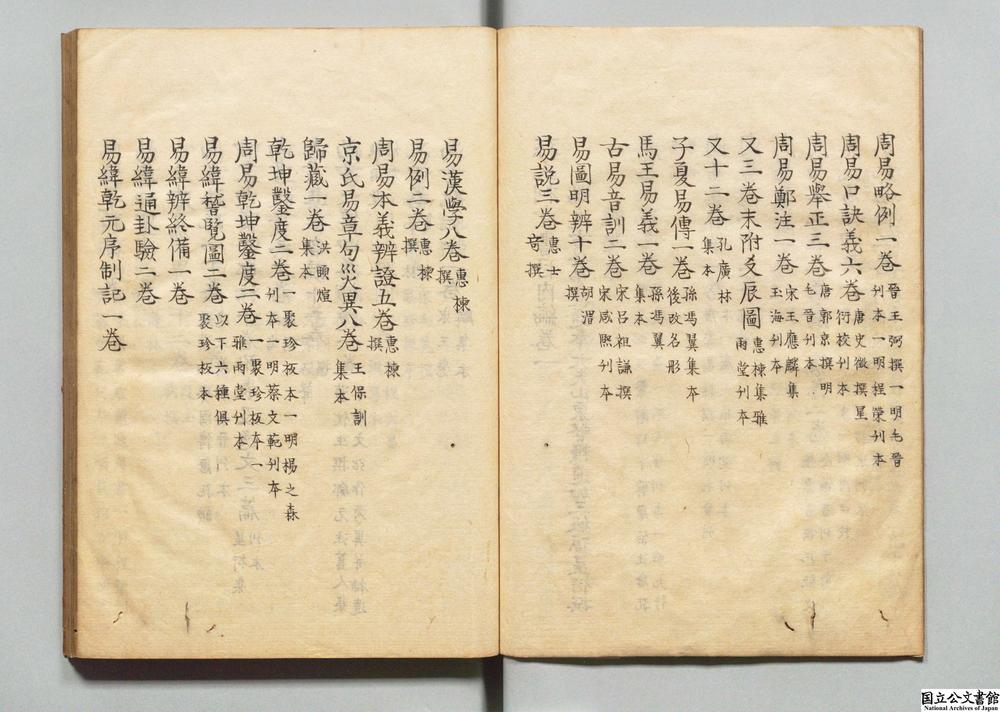 周易略例一卷 晉王弼撰一明毛晉刊本一明程榮刊本
周易口訣義六卷 唐史徵撰星衍校刊本
周易舉正三卷 唐郭京撰明毛晉刊本
周易鄭注一卷 宋王應麟集玉海刊本
又三卷末附爻辰圖 惠棟集雅雨堂刊本
又十二卷 孔廣林集本
子夏易傳一卷 孫馮翼集本後改名形
馬王易義一卷 孫馮翼集本
古易音訓二卷 宋呂祖謙撰宋咸熙刊本
易圖明辨十卷 胡渭撰
易説三卷 惠士奇撰
易漢學八卷 惠棟撰
易例二卷 惠棟撰
周易本義辨證五卷 惠棟撰
京氏易章句災異八卷 王保訓集本
歸藏一卷 洪頤煊集本
乾坤鑿度二卷 一聚珍板本一明楊之森刊本一明蔡文範刊本
周易乾坤鑿度二卷 一聚珍板本一雅雨堂刊本
易緯稽覽圖二卷 以下六種俱聚珍板本
易緯辨終備一卷
易緯通卦驗二卷
易緯乾元序制記一卷
国立公文書館
National Archives of Japan